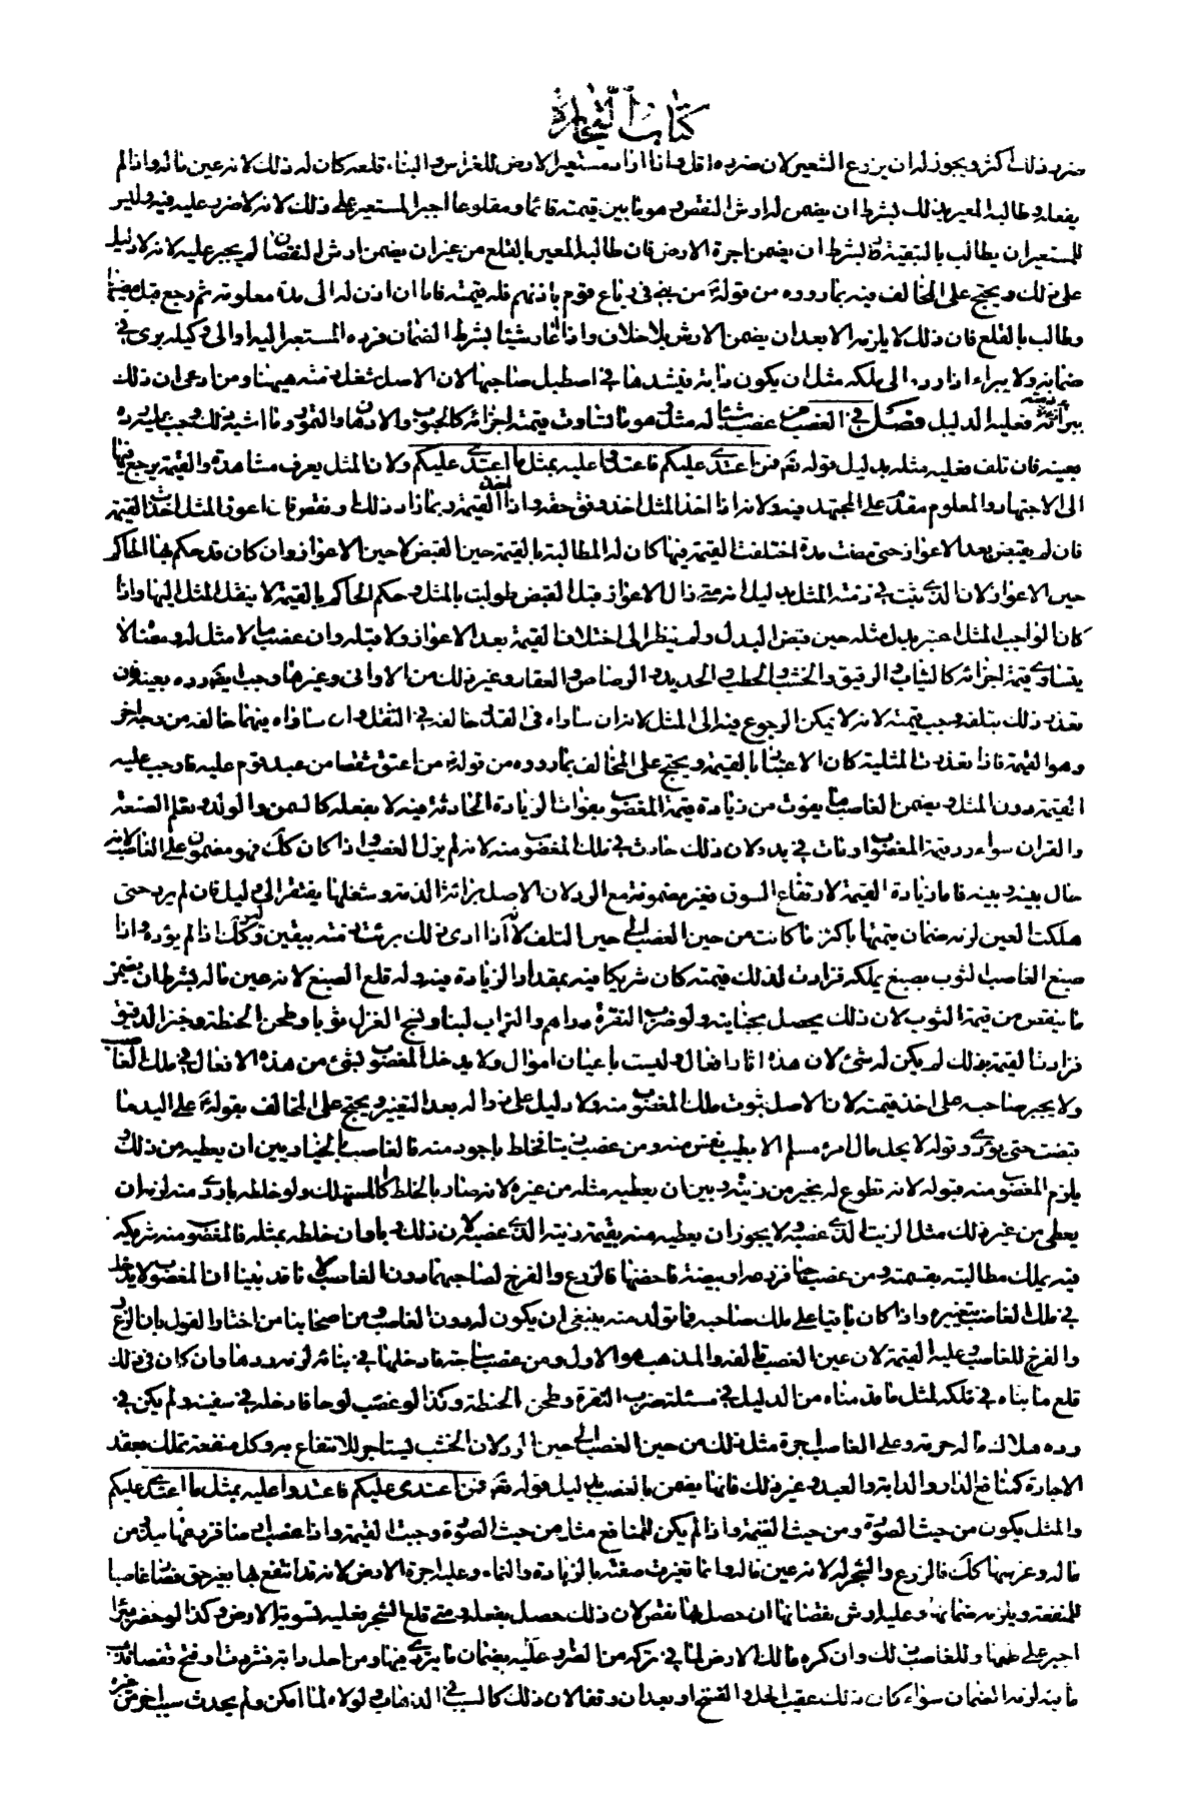 كتاب التجارة
ضرر ذلك أكثر ويجوز له ان يزرع الشعير لان ضرره اقل واذا اراد مستعير الارض للغراس والبناء قلعه كان له ذلك لانه عين ماله واذا لم
يفعل وطالبه المعير بذلك بشرط ان يضمن له ارش النقص وهو ما بين قيمته قائما ومقلوعا اجبر المستعير على ذلك لانه لا ضرر عليه فيه وليس
للمستعير ان يطالب بالتبقية بشرط ان يضمن اجرة الارض فان طالبه المعير بالقلع من غير ان يضمن ارش النقصان لم يجبر عليه لانه لا دليل
على ذلك ويحتج على المخالف فيه بما رووه من قوله من بنى في رباع قوم باذنهم فله قيمته فاما ان اذن له الى مدة معلومة ثم رجع قبل مضيها
وطالب بالقلع فان ذلك لا يلزمه الا بعد ان يضمن الارش بلا خلاف واذا أعار شيئا بشرط الضمان فرده المستعير اليه او الى وكيله برئ من
ضمانه ولا يبرء اذا رده الى ملكه مثل ان يكون دابة فيشدها في اصطبل صاحبها لان الاصل شغل ذمته هيهنا ومن ادعى ان ذلك
يبرئ ذمته فعليه الدليل فصل في الغصب من غصب شيئا له مثل وهو ما تساوت قيمة اجزائه كالحبوب والادهان والتمور وما اشبه ذلك وجب عليه رده
بعينه فان تلف فعليه مثله بدليل قوله تعم فمن اعتدى عليكم فاعتدوا عليه بمثل ما اعتدى عليكم ولان المثل يعرف مشاهدة والقيمة يرجع فيها
الى الاجتهاد والمعلوم مقدم على المجتهد فيه ولانه اذا اخذ المثل اخذ وفق حقه واذا اخذ القيمة ربما زاد ذلك او نقص فان اعوز المثل اخذت القيمة
فان لم يقبض بعد الاعواز حتى مضت مدة اختلفت القيمة فيها كان له المطالبة بالقيمة حين القبض لا حين الاعواز وان كان قد حكم بها الحاكم
حين الاعواز لان الذي ثبت في ذمته المثل بدليل انه متى زال الاعواز قبل القبض طولب بالمثل وحكم الحاكم بالقيمة لا ينقل المثل اليها واذا
كان الواجب المثل اعتبر بدل مثله حين قبض البدل ولم ينظر الى اختلاف القيمة بعد الاعواز ولا قبله وان غصب ما لا مثل له ومعناه لا
يتساوى قيمة اجزائه كالثياب والرقيق والخشب والحطب والحديد والرصاص والعقار وغير ذلك من الاواني وغيرها وجب ايضا رده بعينه فان
تعذر ذلك بتلفه وجب قيمته لانه لا يمكن الرجوع فيه الى المثل لانه ان ساواه في القدر خالفه في الثقل وان ساواه فيهما خالفه من وجه اخر
وهو القيمة فاذا تعذرت المثلية كان الاعتبار بالقيمة ويحتج على المخالف بما رووه من قوله من اعتق شقصا من عبد قوم عليه فاوجب عليه
القيمة دون المثل ويضمن الغاصب ما يفوت من زيادة قيمة المغصوب بفوات الزيادة الحادثة فيه لا بفعله كالسمن والولد وتعلم الصنعة
والقران سواء رد قيمة المغصوب او مات في يده لان ذلك حادث في ملك المغصوب منه لانه لم يزل بالغصب واذا كان كك فهو مضمون على الغاصب لانه
حال بينه وبينه فاما زيادة القيمة لارتفاع السوق فغير مضمونة مع الرد لان الاصل برائة الذمة وشغلها يفتقر الى دليل فان لم يرد حتى
هلكت العين لزمه ضمان قيمتها باكثر ما كانت من حين الغصب الى حين التلف لانه اذا ادى ذلك برئت ذمته بيقين وليس كك اذا لم يؤده واذا
صبغ الغاصب الثوب بصبغ يملكه فزادت لذلك قيمته كان شريكا فيه بمقدار الزيادة فيه وله قلع الصبغ لانه عين ماله بشرط ان يضمن
ما ينقص من قيمة الثوب لان ذلك يحصل بجنايته ولو ضرب النقرة دراهم والتراب لبنا ونسج الغزل ثوبا وطحن الحنطة وخبز الدقيق
فزادت القيمة بذلك لم يكن له شئ لان هذه اثار افعال وليست باعيان اموال ولا يدخل المغصوب بشئ من هذه الافعال في ملك الغاصب
ولا يجبر صاحبه على اخذ قيمته لان الاصل ثبوت ملك المغصوب منه ولا دليل على زواله بعد التغيير ويحتج على المخالف بقوله على اليد ما
قبضت حتى يؤدى وقوله لا يحل مال امرء مسلم الا بطيب نفس منه ومن غصب زيتا فخلطه باجود منه فالغاصب بالخيار بين ان يعطيه من ذلك و
يلزم المغصوب منه قبوله لانه تطوع له بخير من زيته وبين ان يعطيه مثله من غيره لانه صار بالخلط كالمستهلك ولو خلطه باردى منه لزمه ان
يعطى من غير ذلك مثل الزيت الذي غصبه ولا يجوز ان يعطيه منه بقيمة زيته الذي غصبه لان ذلك ربا وان خلطه بمثله فالمغصوب منه شريكه
فيه يملك مطالبته بقسمته ومن غصب حبا فزرعه او بيضة فاحضنها فالزرع والفرخ لصاحبهما دون الغاصب لانا قد بينا ان المغصوب لا يدخل
في ملك الغاصب بتغييره واذا كان باقيا على ملك صاحبه فما تولد منه ينبغي ان يكون له دون الغاصب ومن اصحابنا من اختار القول بان الزرع
والفرخ للغاصب وعليه القيمة لان عين الغصب تالفة والمذهب هو الاول ومن غصب ساجة فادخلها في بنائه لزمه ردها وان كان في ذلك
قلع ما بناه في ملكه لمثل ما قدمناه من الدليل في مسئلة ضرب النقرة وطحن الحنطة وكذا لو غصب لوحا فادخله في سفينة ولم يكن في
رده هلاك ما له حرمة وعلى الغاصب اجرة مثل ذلك من حين الغصب الى حين الرد لان الخشب يستاجر للانتفاع به وكل منفعة تملك بعقد
الاجارة كمنافع الدار والدابة والعبد وغير ذلك فانها يضمن بالغصب بدليل قوله تعم فمن اعتدى عليكم فاعتدوا عليه بمثل ما اعتدى عليكم
والمثل يكون من حيث الصورة ومن حيث القيمة واذا لم يكن للمنافع مثل من حيث الصورة وجبت القيمة واذا غصب ارضا فزرعها ببذر من
ماله وغرسها كك فالزرع والشجر له لانه عين ماله وانما تغيرت صفته بالزيادة والنماء وعليه اجرة الارض لانه قد انتفع بها بغير حق فصار غاصبا
للمنفعة ويلزمه ضمانها وعليه ارش نقصانها ان حصل بها نقص لان ذلك حصل بفعله ومتى قلع الشجر فعليه تسوية الارض وكذا لو حفر بئرا
اجبر على طمها وللغاصب ذلك وان كره مالك الارض لما في تركه من الضرر عليه بضمان ما يتردى فيها ومن احل دابة فشردت او فتح قفصا فذهب
ما فيه لزمه الضمان سواء كان ذلك عقيب الحل والفتح او بعد ان وقفا لان ذلك كالسبب في الذهاب ولولاه لما امكن ولم يحدث سبب اخر من غيره